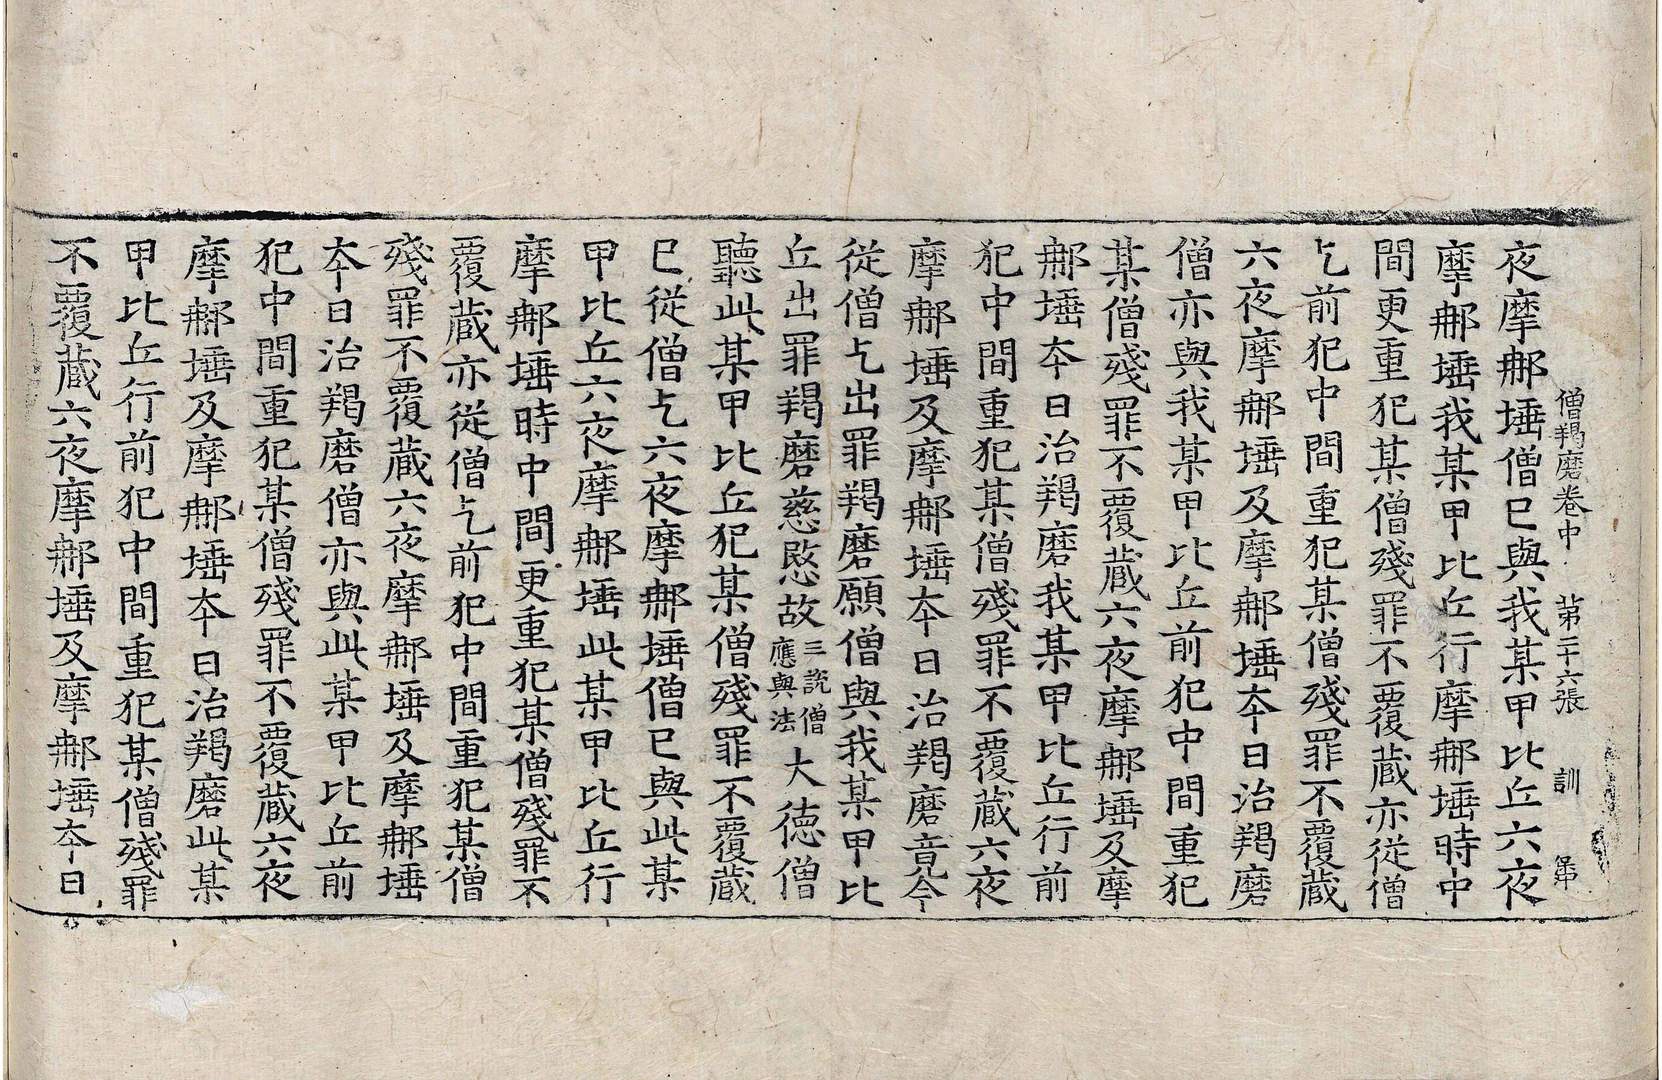 僧羯磨卷中 第二十六張 訓
夜摩那埵僧已與我某甲比丘六夜
摩那埵我某甲比丘行摩那埵時中
間更重犯某僧殘罪不覆藏亦從僧
乞前犯中間重犯某僧殘罪不覆藏
六夜摩那埵及摩那埵夲日治羯磨
僧亦與我某甲比丘前犯中間重犯
某僧殘罪不覆藏六夜摩那埵及摩
那埵夲日治羯磨我某甲比丘行前
犯中間重犯某僧殘罪不覆藏六夜
摩那埵及摩那埵夲日治羯磨竟今
從僧乞出罪羯磨願僧與我某甲比
丘出罪羯磨慈愍故三說僧應與法大德僧
聽此某甲比丘犯某僧殘罪不覆藏
已從僧乞六夜摩那埵僧已與此某
甲比丘六夜摩那埵此某甲比丘行
摩那埵時中間更重犯某僧殘罪不
覆藏亦從僧乞前犯中間重犯某僧
殘罪不覆藏六夜摩那埵及摩那埵
夲日治羯磨僧亦與此某甲比丘前
犯中間重犯某僧殘罪不覆藏六夜
摩那埵及摩那埵夲日治羯磨此某
甲比丘行前犯中間重犯某僧殘罪
不覆藏六夜摩那埵及摩那埵夲日